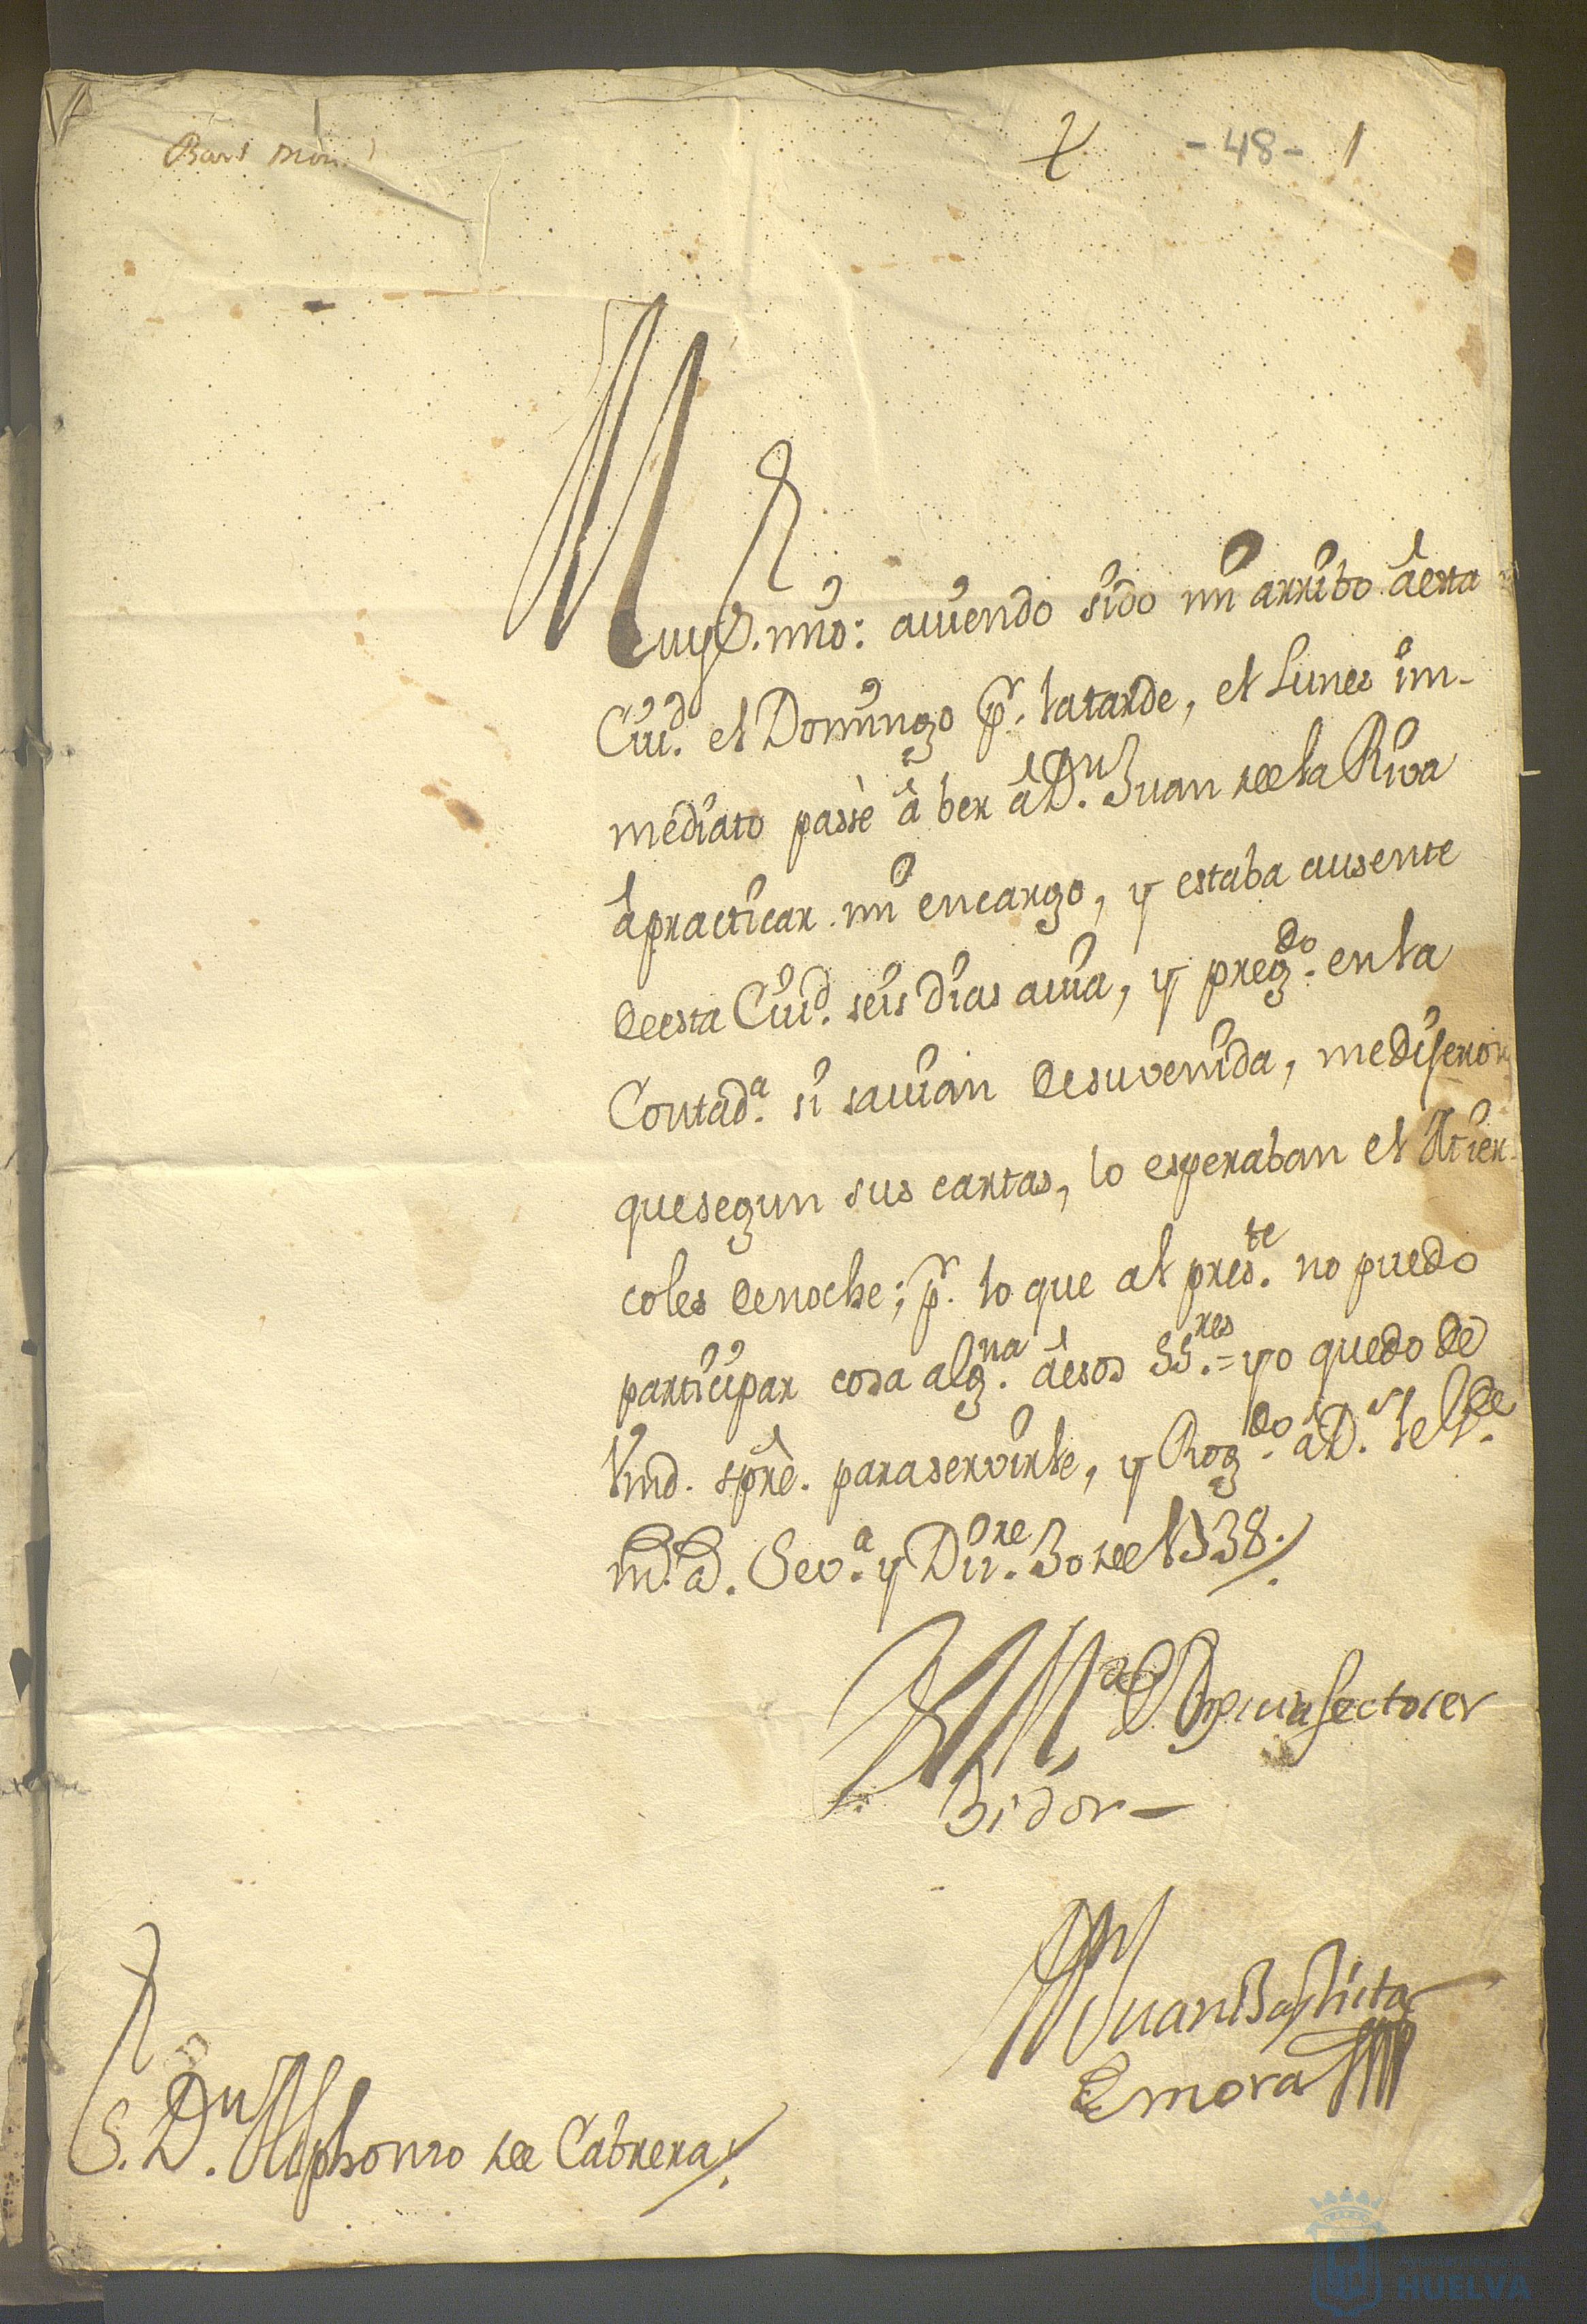 - 48 - 1
Muy S.r mio: aviendo sido mi arribo à esta
Ciud. el Domingo p.r la tarde, el Lunes im-
mediato passè â ber â D.n Juan de la Riva
â practicar mi encargo, y estaba ausente
de esta Ciud. seis dias avia, y preg.do en la
Contad.a si savian de su venida, me dijeron
que segun sus cartas, lo esperaban el Mier-
coles de noche; p.r lo que al pres.te no puedo
participar cosa alg.na â esos SS.res = yo quedo de
Vmd. sprê. para servirle, y Rog.do â D.s le G.de
m.s a.s Sev.a y Diz.re 30 de 1738.
BLM.o de Vm su afecto ser
bidor
Juan Baptista
de mora
S.r D.n Alphonso de Cabrera
HUELVA